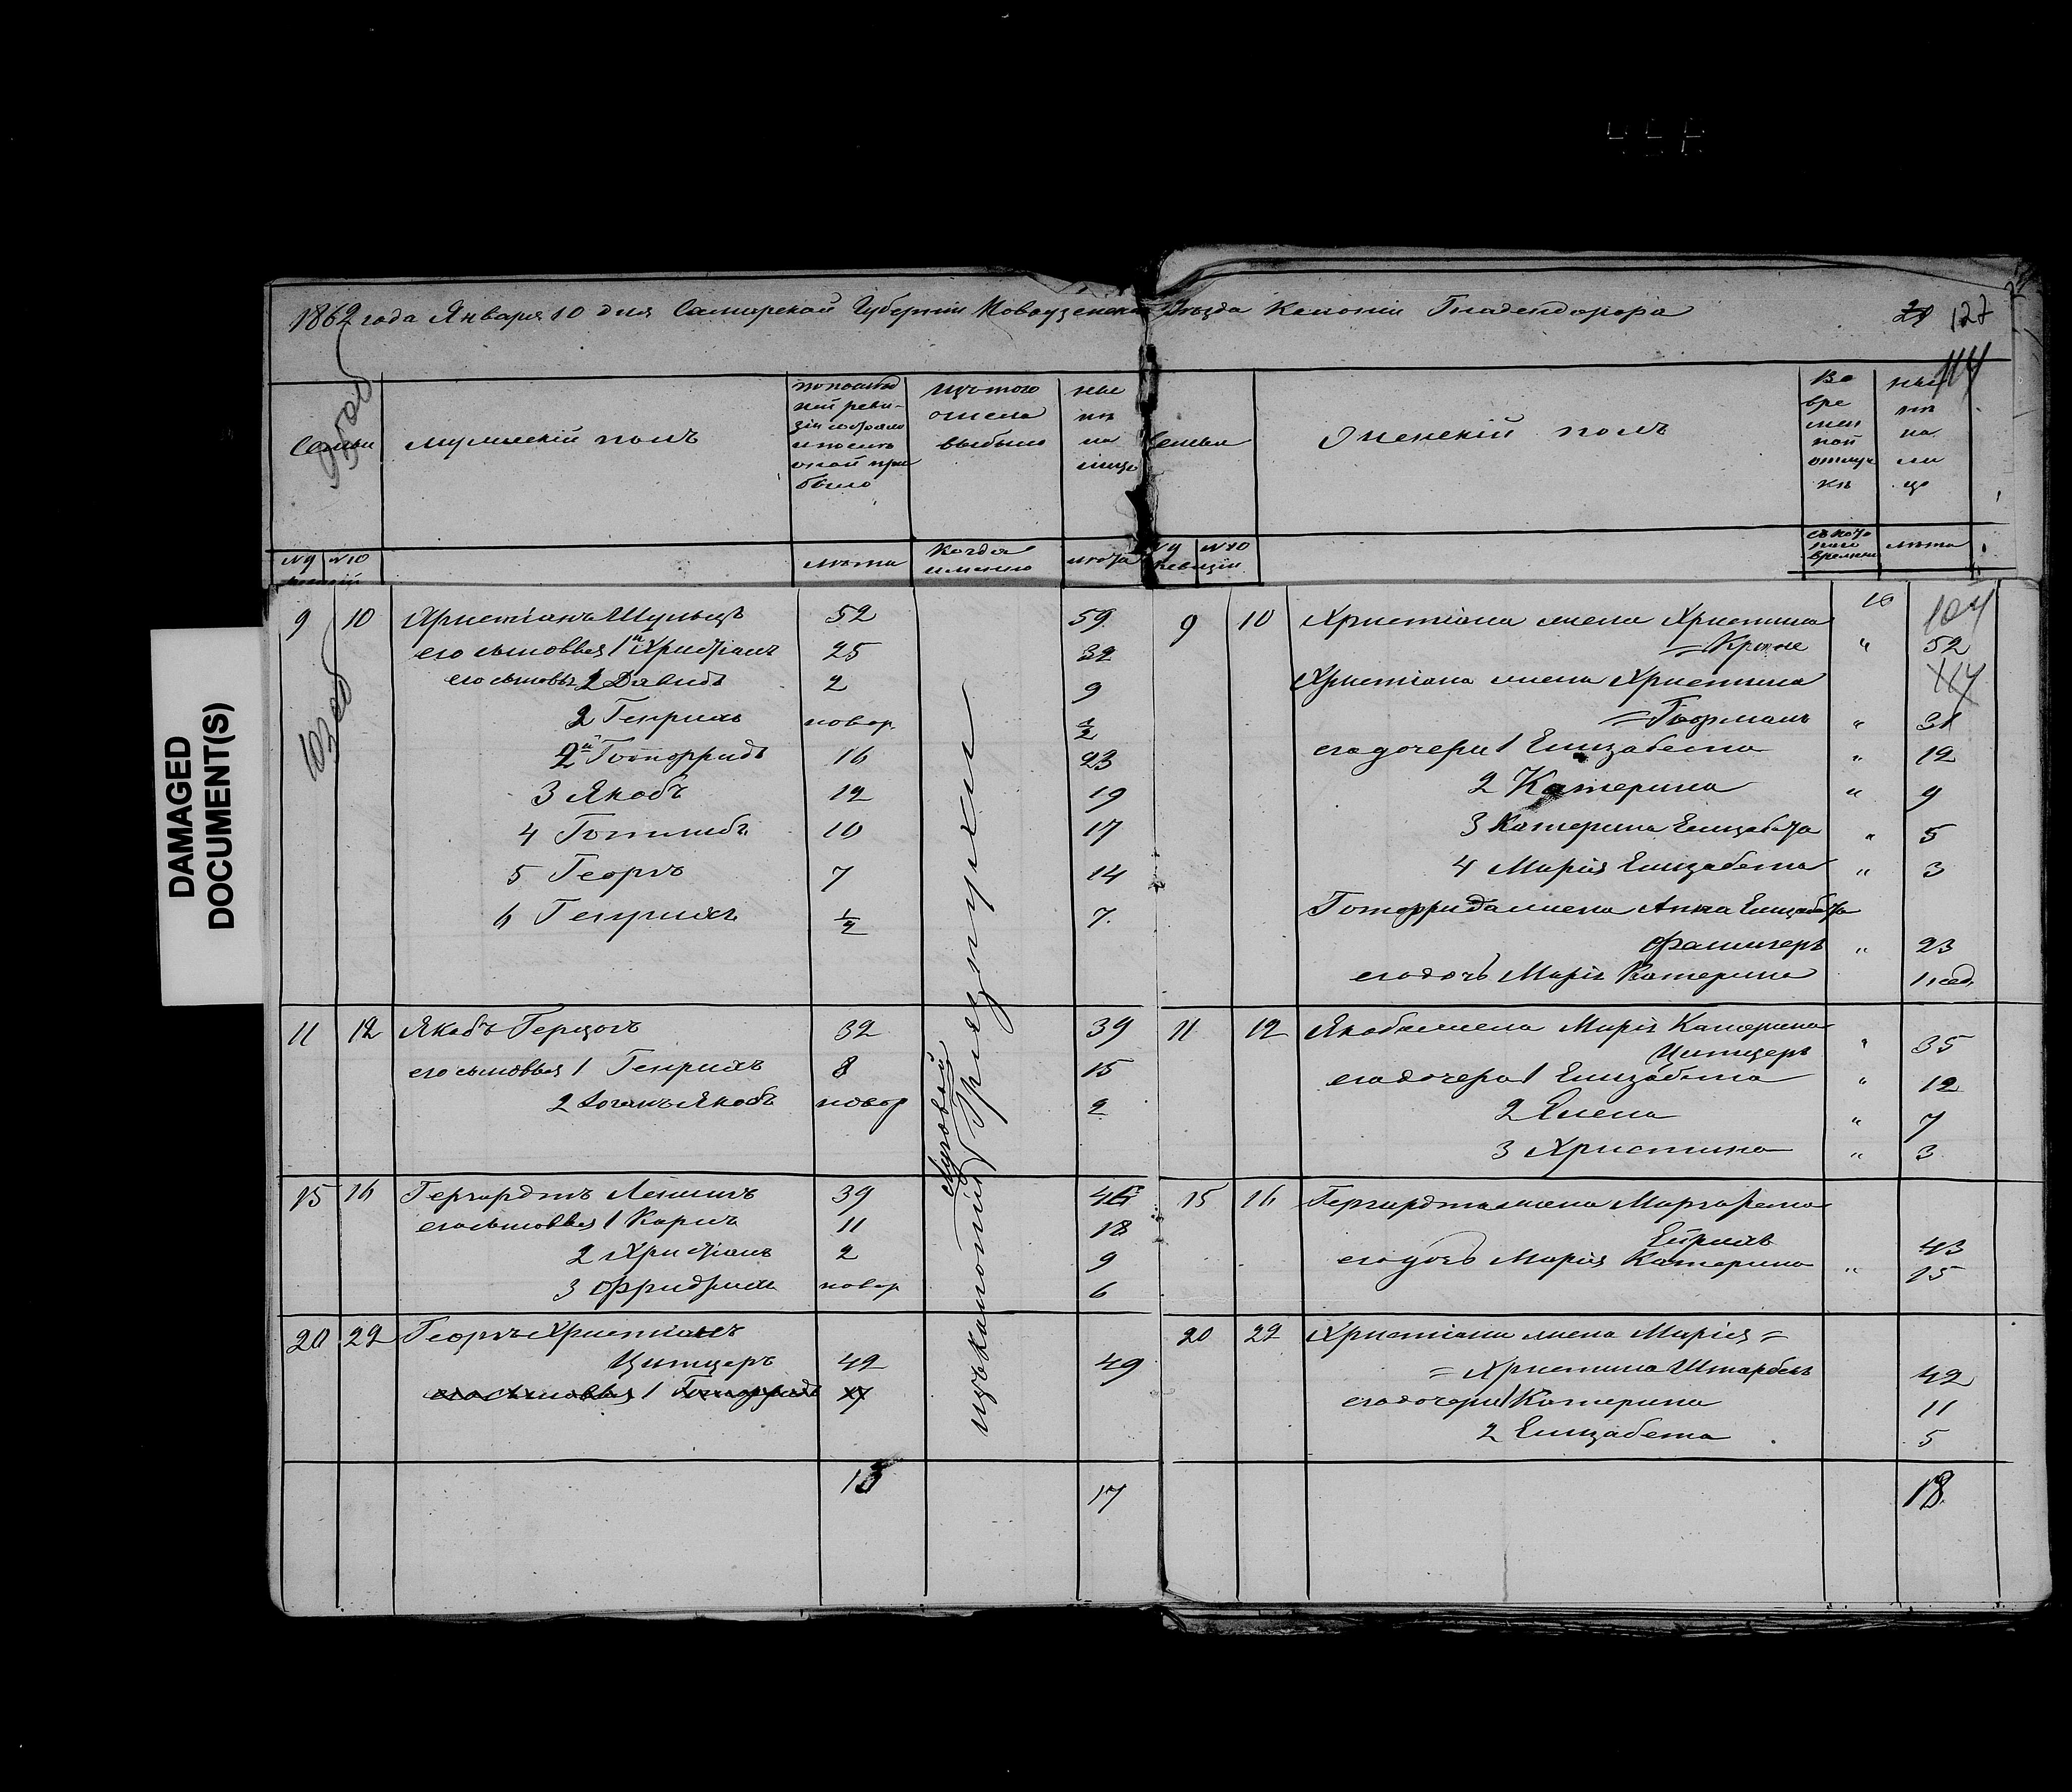 DAMAGED
DOCUMENT(S)
1862 года Января 10 дня Самарской Губерніи Новоузенскаго Уезда Колоніи Гнадендорфа
127
114
Семьи
мужескій полъ
по послед
ней реви-
зіи состояло
и после
оной при
было
изъ того
числа
выбыло
ныне
на
лицо
№9 №10
ревизій
лета
Когда
именно
лета
Семьи
Женскій полъ
Во
вре
мен
ной
отлуч
ке
ныне
на
ли
цо
№9 №10
Ревизіи
съ кото
раго
времени
лета
9 10 Христіанъ Шульцъ 52 59
его сыновья 1й Христіанъ 25 32
его сыновья 1 Давидъ 2 9
2 Генрихъ новор. 1/2
2й Готфридъ 16 23
3 Якобъ 12 19
4 Готлибъ 10 17
5 Георгъ 7 14
6 Генрихъ 1/2 7
11 12 Якобъ Герцогъ 32 39
его сыновья 1 Генрихъ 8 15
2 Іоганъ Якобъ новор 2
15 16 Гергардтъ Лейшъ 39 46
его сыновья 1 Карлъ 11 18
2 Христіанъ 2 9
3 Фридрихъ новор 6
20 22 Георгъ Христіанъ
Цитцеръ 42 49
его сыновья 1 Готфридъ 17
13 17
изъ колоніи Луговой Грязнухи
9 10 Христіана жена Христина
=Кроне " 52
104
114
Христіана жена Христина
=Гофманъ " 31
его дочери 1 Елизабета " 12
2 Катерина " 9
3 Катерина Елизабета " 5
4 Марія Елизабета " 3
Готфрида жена Анна Елизабета
" 23
его дочь Марія Катерина 1 нед.
11 12 Якоба жена Марія Катерина
Цитцеръ " 35
его дочери 1 Елизабета " 12
2 Елена " 7
3 Христина " 3
15 16 Гергардта жена Маргарета
43
его дочь Марія Катерина " 15
20 22 Христіана жена Марія=
=Христина Штарбекъ 42
его дочери 1 Катерина 11
2 Елизабета 5
18